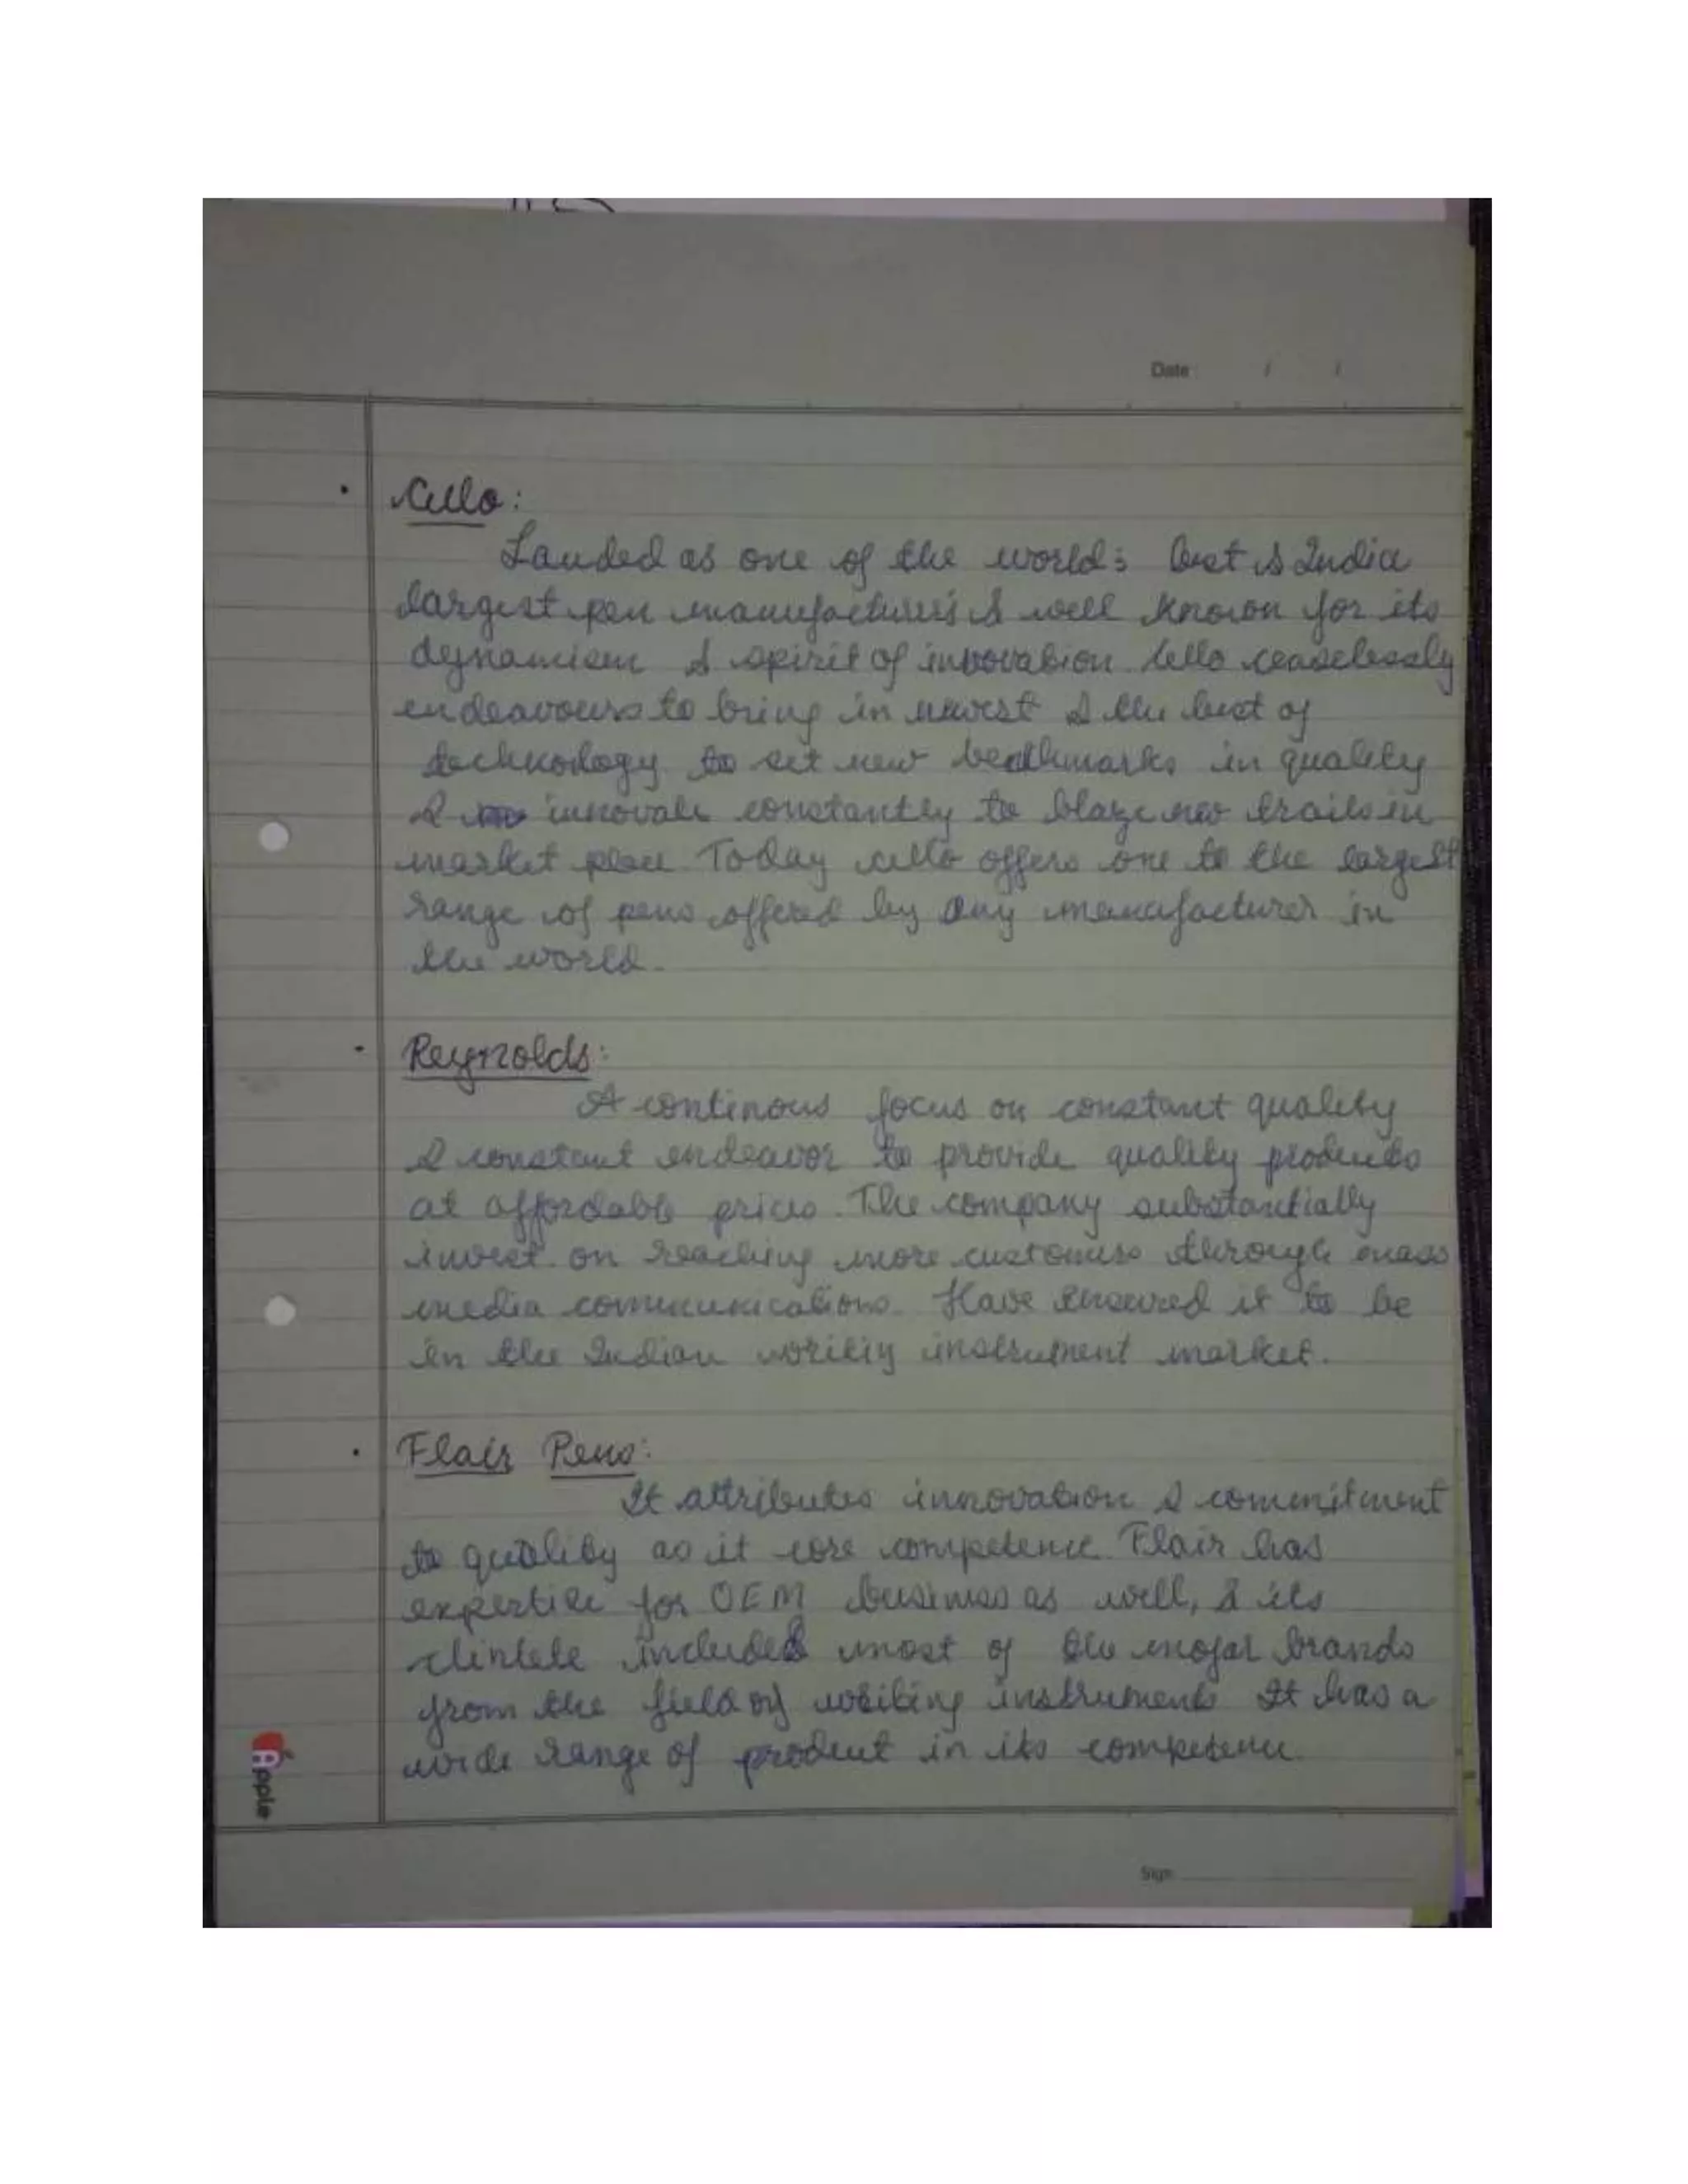 Date : / /
• Cello:
Lauded as one of the world's best & India
largest pen manufacturers & well known for its
dynamism & spirit of innovation. Cello ceaselessly
endeavours to bring in newest & the best of
technology to set new bechmarks in quality
& innovate constantly to blaze new trails in
market place. Today cello offers one to the largest
range of pens offered by any manufacturer in
the world.
• Reynolds:
A continous focus on constant quality
& constant endeavor to provide quality products
at affordable prices. The company substantially
invest on reaching more customers through mass
media communications. Have ensured it to be
in the Indian writiy instrument market.
• Flair Pens:
It attributes innovation & commitment
to quality as it core competence. Flair has
expertise for OEM business as well, & its
clintele included most of the mojar brands
from the field of writing instruments It has a
wide range of product in its competence.
Apple
Sign